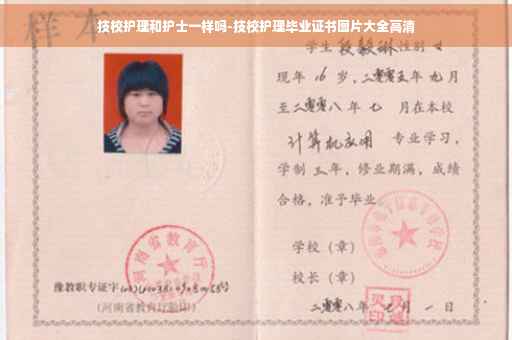 技校护理和护士一样吗-技校护理毕业证书图片大全高清
样本
学生 段毅琳 性别 女
现年 16 岁,二零零五年 九月
至二零零八年 七 月在本校
计算机应用 专业学习,
学制 三 年,修业期满,成绩
合格,准予毕业
学校(章)
校长(章)
二零零八年 月 一 日
河南省教育厅
豫教职专证字
(河南省教育厅验印)